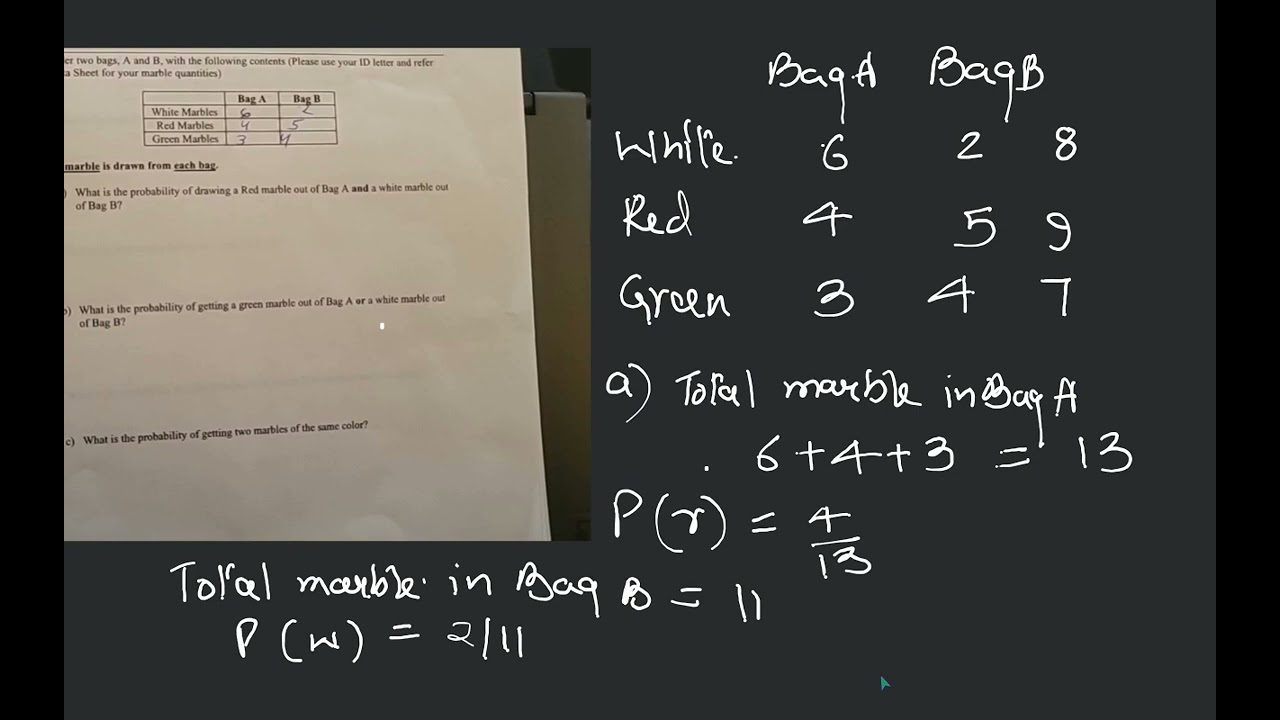 er two bags, A and B, with the following contents (Please use your ID letter and refer
a Sheet for your marble quantities)
Bag A Bag B
White Marbles 6 2
Red Marbles 4 5
Green Marbles 3 4
marble is drawn from each bag.
) What is the probability of drawing a Red marble out of Bag A and a white marble out
of Bag B?
b) What is the probability of getting a green marble out of Bag A or a white marble out
of Bag B?
c) What is the probability of getting two marbles of the same color?
Bag A Bag B
White. 6 2 8
Red 4 5 9
Green 3 4 7
a) Total marble in Bag A
. 6+4+3 = 13
P(r) = 4/13
Total marble in Bag B = 11
P(w) = 2/11